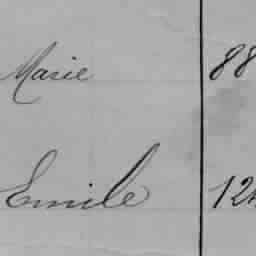 Marie 88
Emile